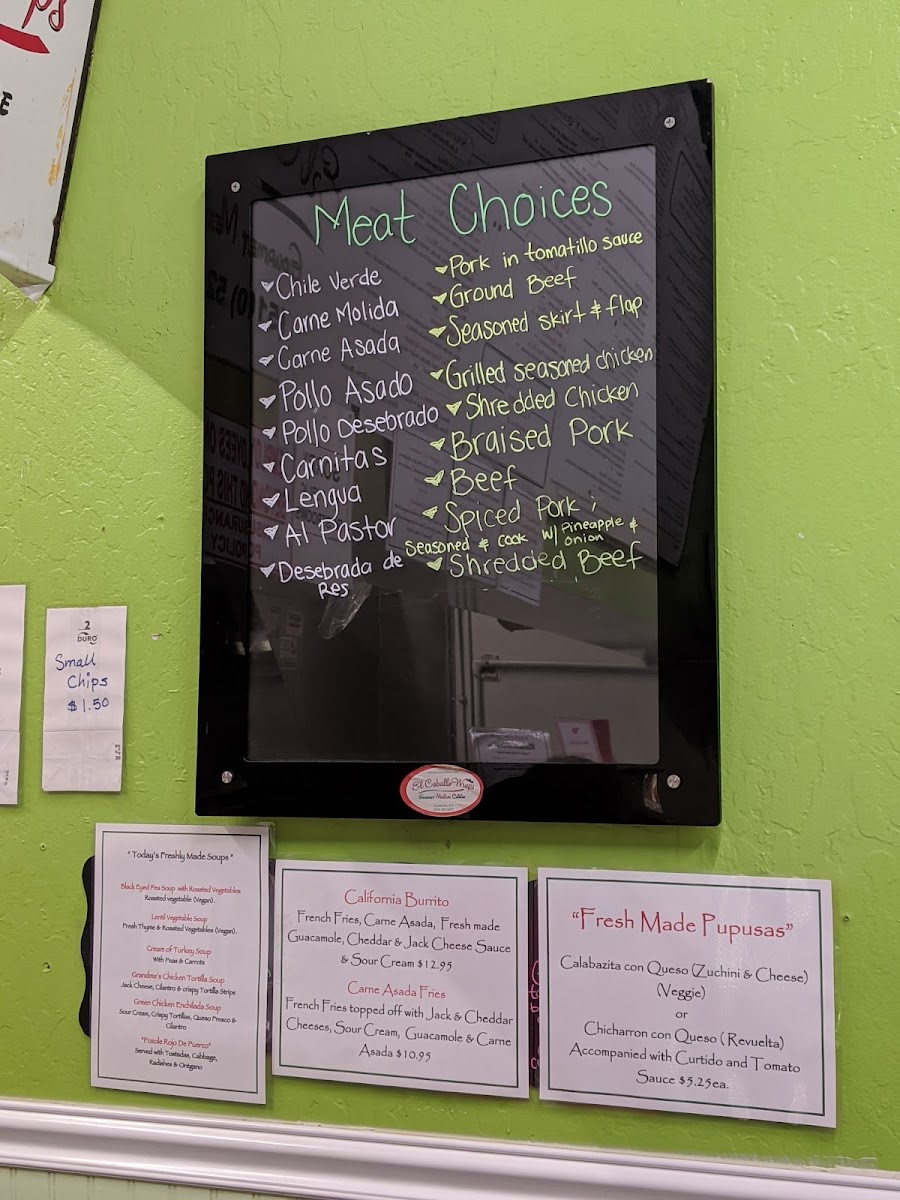 Meat Choices
Chile Verde
Carne Molida
Carne Asada
Pollo Asado
Pollo Desebrado
Carnitas
Lengua
Al Pastor
Desebrada de
Res
Pork in tomatillo sauce
Ground Beef
Seasoned skirt & flap
Grilled seasoned chicken
Shredded Chicken
Braised Pork
Beef
Spiced Pork ;
Seasoned & cook w/ Pineapple &
onion
Shredded Beef
2
DURO
Small
Chips
$1.50
El Caballo Wraps
"Today's Freshly Made Soups"
Black Eyed Pea Soup with Roasted Vegetables
Roasted vegetable (Vegan).
Lentil Vegetable Soup
Fresh Thyme & Roasted Vegetables (Vegan).
Cream of Turkey Soup
With Peas & Carrots
Grandma's Chicken Tortilla Soup
Jack Cheese, Cilantro & crispy Tortilla Strips
Green Chicken Enchilada Soup
Sour Cream, Crispy Tortillas, Queso Fresco &
Cilantro
"Pozole Rojo De Puerco"
Served with Tostadas, Cabbage,
Radishes & Orégano
California Burrito
French Fries, Carne Asada, Fresh made
Guacamole, Cheddar & Jack Cheese Sauce
& Sour Cream $12.95
Carne Asada Fries
French Fries topped off with Jack & Cheddar
Cheeses, Sour Cream, Guacamole & Carne
Asada $10.95
"Fresh Made Pupusas"
Calabazita con Queso (Zuchini & Cheese)
(Veggie)
or
Chicharron con Queso (Revuelta)
Accompanied with Curtido and Tomato
Sauce $5.25ea.